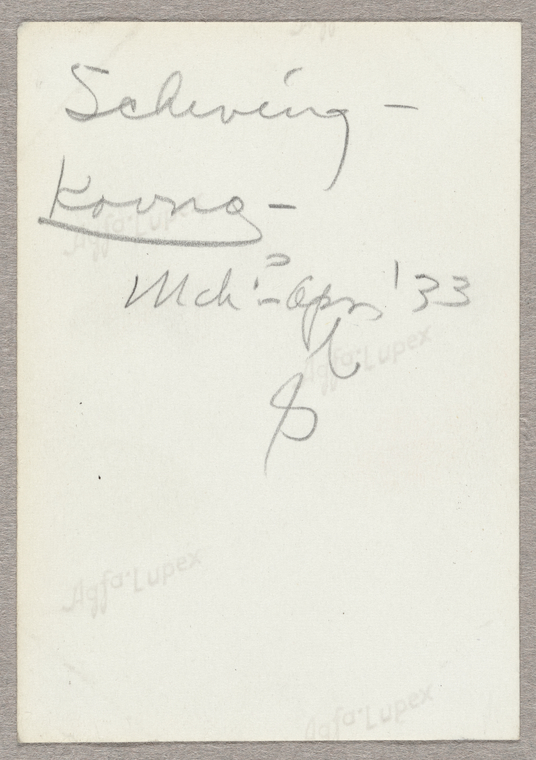 Scheving -
Kovno -
Mch - Apr '33
Agfa-Lupex
Agfa-Lupex
Agfa-Lupex
Agfa-Lupex